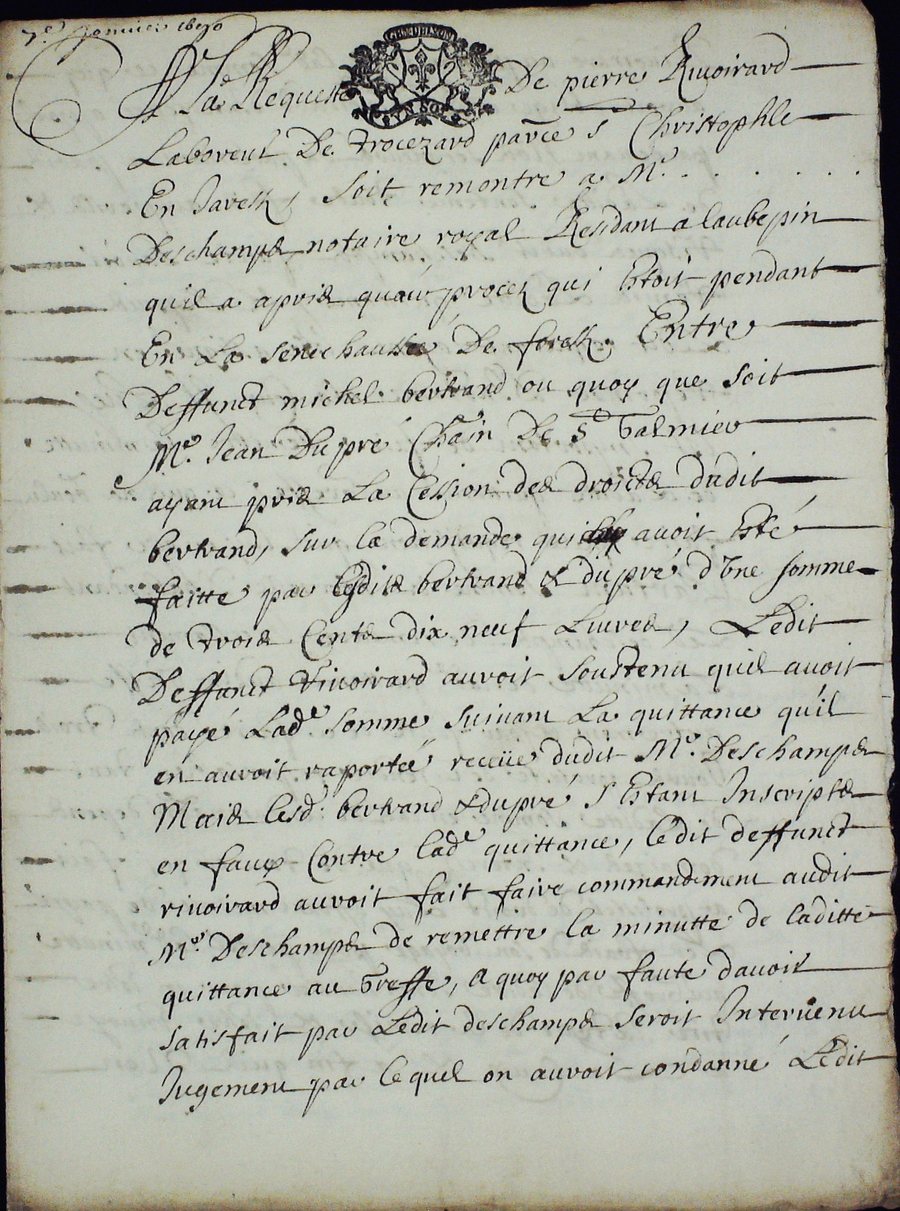 7e Janvier 1690
A la Requeste De pierre Rivoirard
Laboreur De trocezard parce St Christophle
En Jarest, soit remontre a Me
Deschamps notaire royal Residant a laubepin
quil a apris quau procez qui Estoit pendant
En La senechaussée De forest, Entre
Deffunct michel bertrand ou quoy que soit
Me. Jean Dupré Chain De St Galmier
ayant pris La Cession des droicts dudit
bertrand, sur la demande qui avoit Esté
faitte par lesdits bertrand & dupré d'Une somme
de trois Cents dix neuf Livres, Ledit
Deffunct rivoirard auroit soustenu quil avoit
payé Lade somme suivant La quittance qu'il
en auroit raportée receüe dudit Me. Deschamps
Mais lesd. bertrand & dupré s'Estant Inscripts
en faux Contre lade quittance, ledit deffunct
rivoirard auroit fait faire commandement audit
Me. Deschamps de remettre la minutte de laditte
quittance au Greffe, A quoy par faute davoir
satisfait par Ledit deschamps seroit Intervenu
Jugement par lequel on auroit condanné Ledit